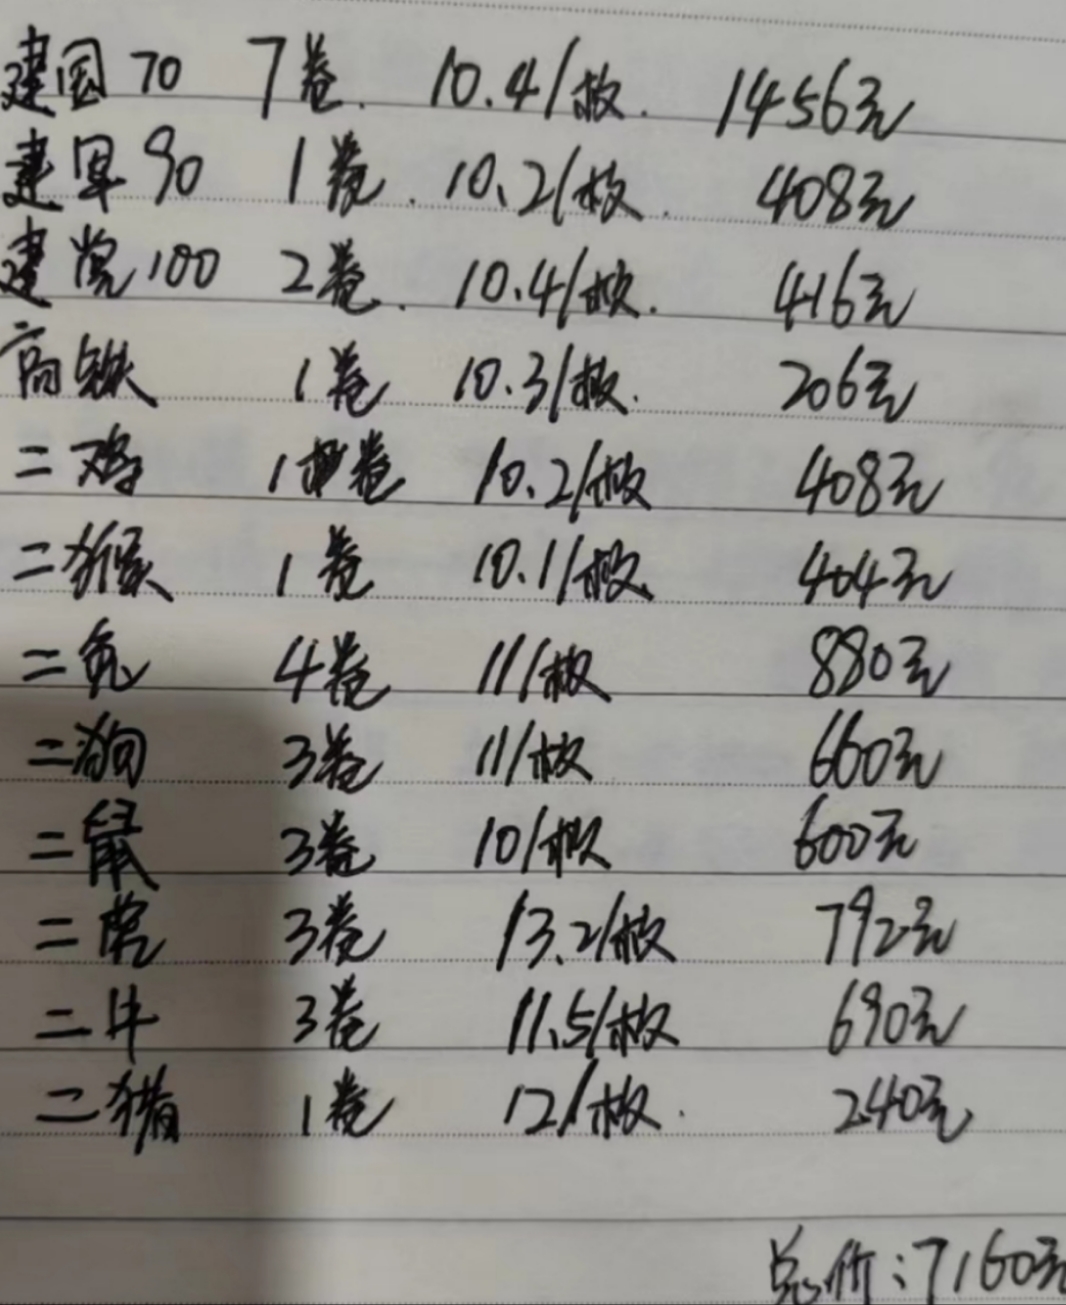 建国70 7卷. 10.4/枚. 1456元
建军90 1卷. 10.2/枚. 408元
建党100 2卷. 10.4/枚. 416元
高铁 1卷 10.3/枚. 206元
二鸡 1卷 10.2/枚 408元
二猴 1卷 10.1/枚 404元
二兔 4卷 11/枚 880元
二狗 3卷 11/枚 660元
二鼠 3卷 10/枚 600元
二虎 3卷 13.2/枚 792元
二牛 3卷 11.5/枚 690元
二猪 1卷 12/枚. 240元
总价:7160元